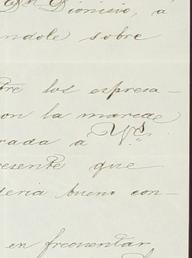 Dn Dionisio, á
ndole sobre
tre los espresa-
on la merced
rada a Vs.
esente que
seria bueno con-
en frecuentar